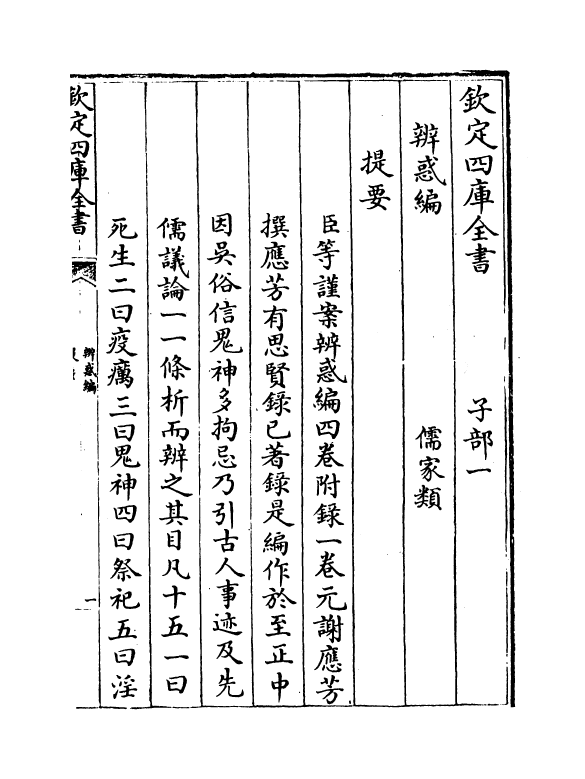 欽定四庫全書 子部一
辨惑編 儒家類
提要
臣等謹案辨惑編四卷附錄一卷元謝應芳
撰應芳有思賢錄已著錄是編作於至正中
因吳俗信鬼神多拘忌乃引古人事迹及先
儒議論一一條析而辨之其目凡十五一曰
死生二曰疫癘三曰鬼神四曰祭祀五曰淫
欽定四庫全書
辨惑編
一